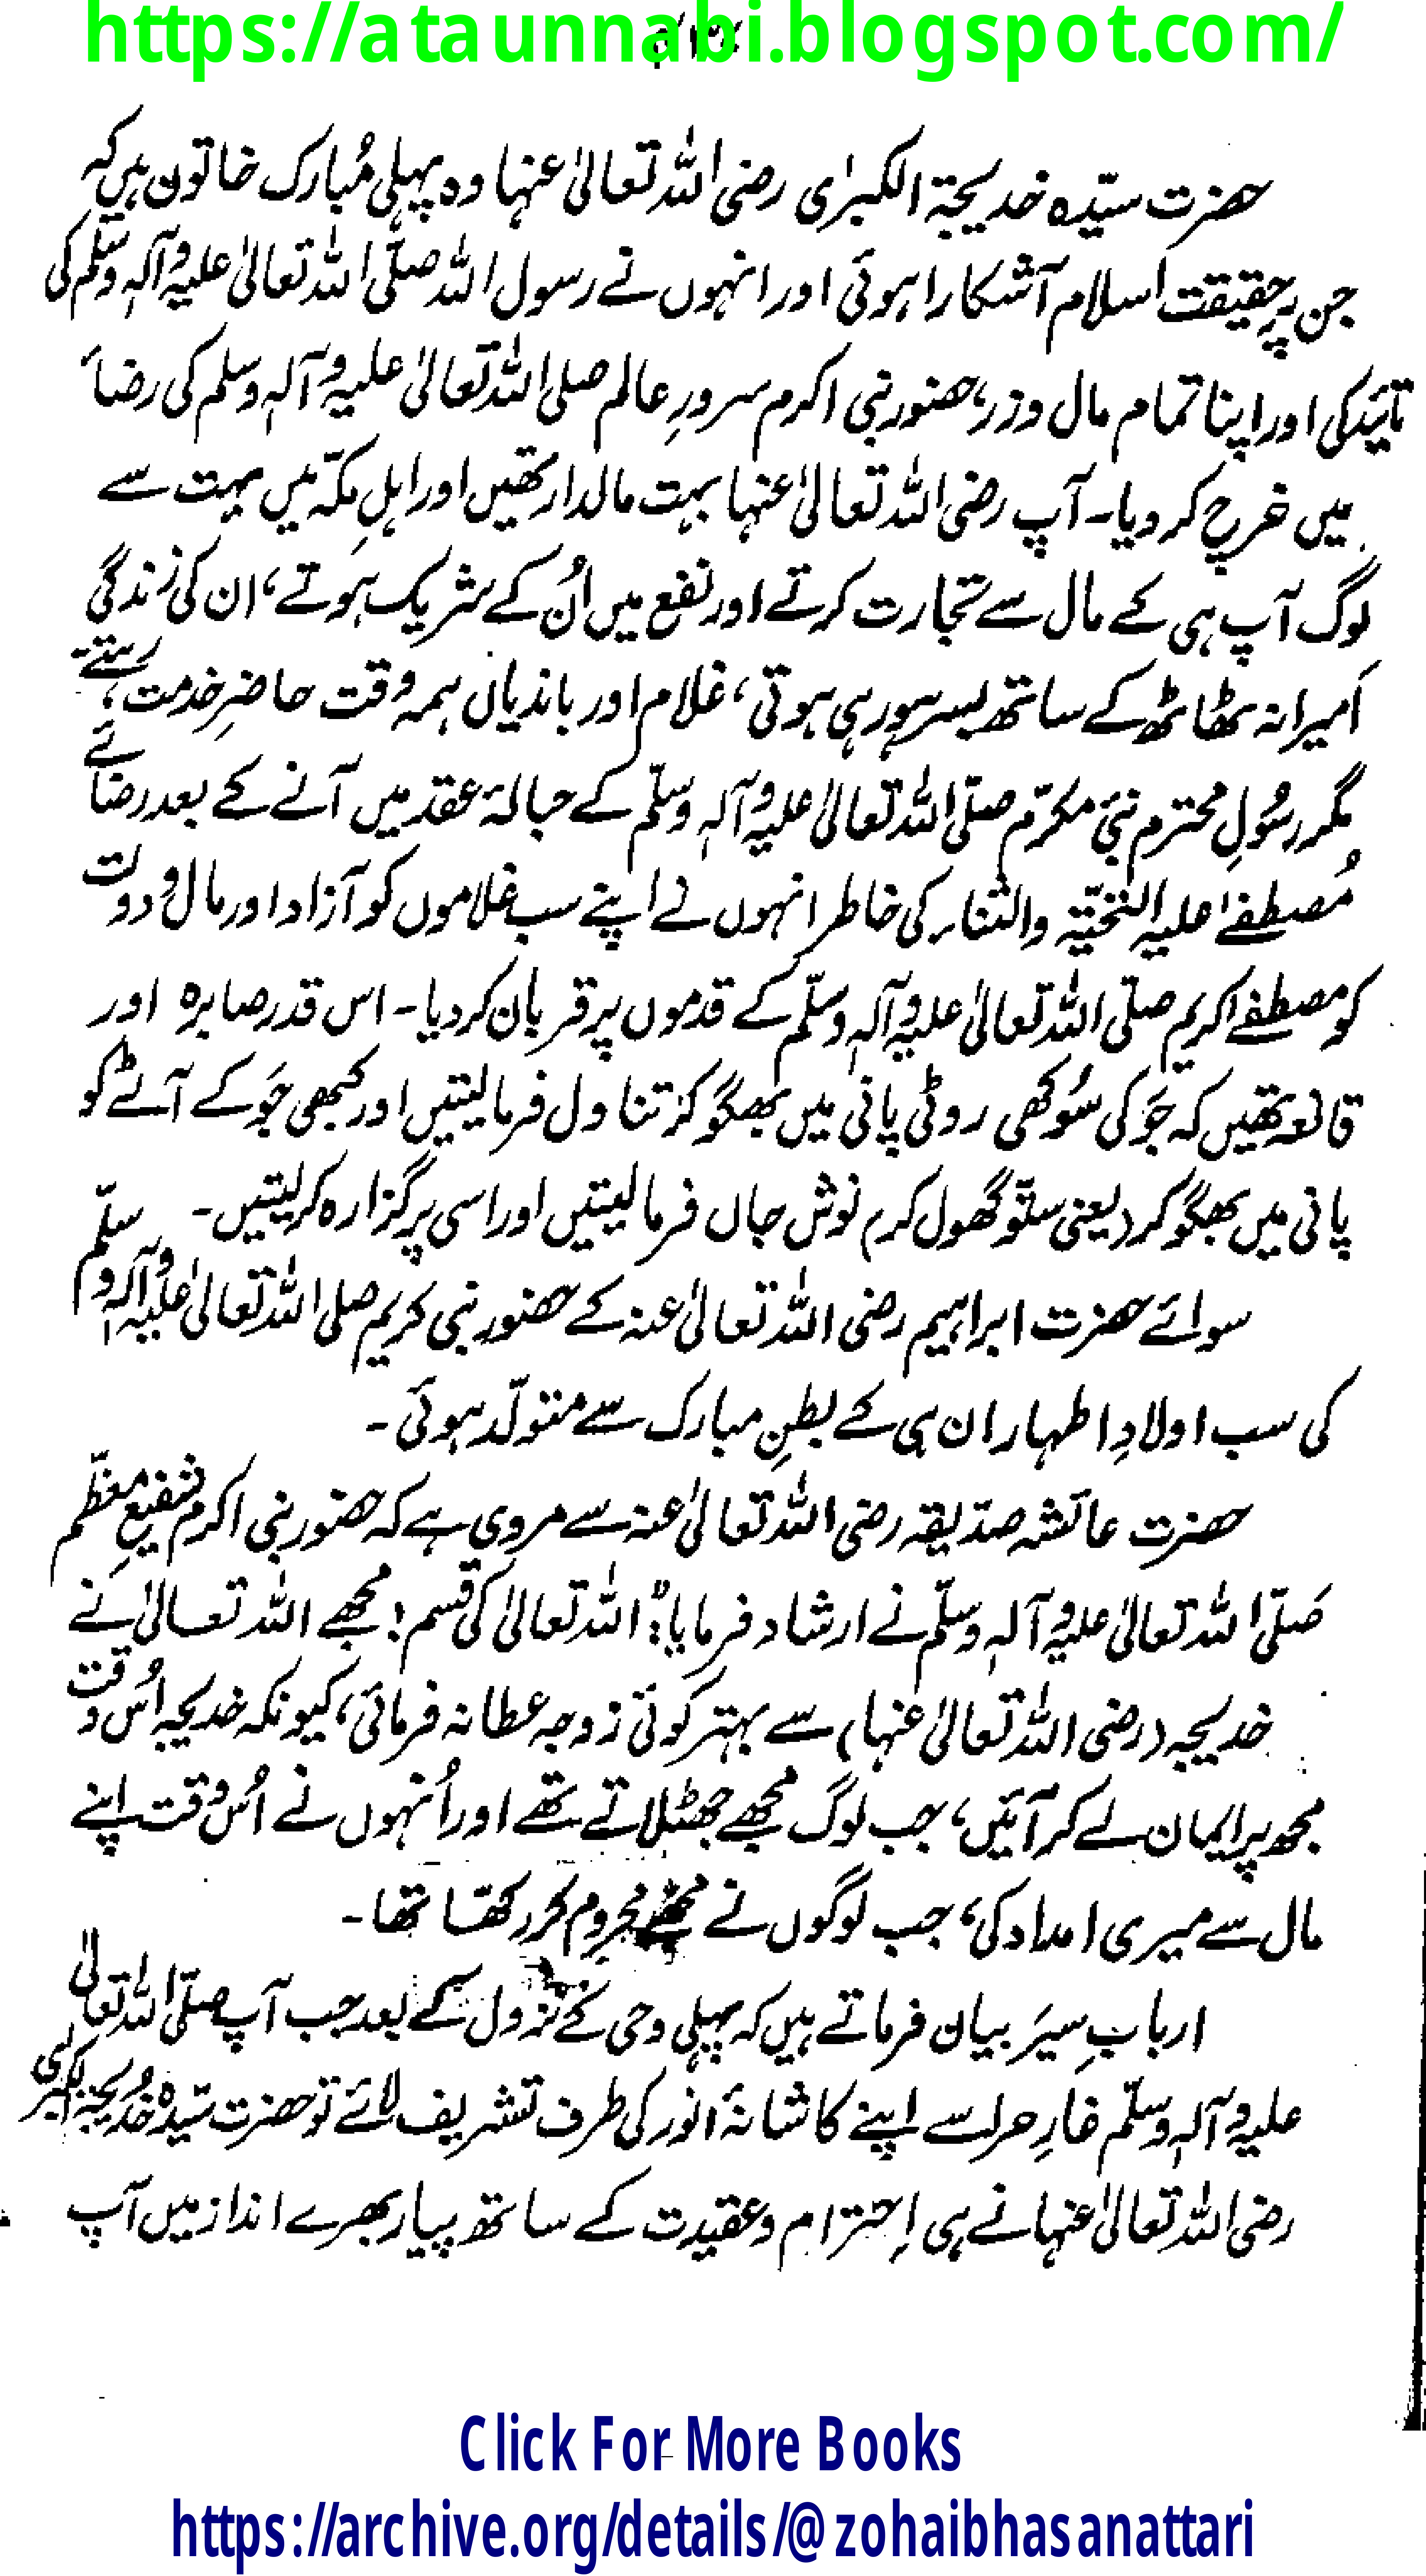 https://ataunnabi.blogspot.com/
حضرت سیّدہ خدیجۃ الکبرٰی رضی اللہ تعالیٰ عنہا وہ پہلی مُبارک خاتون ہیں کہ
جن پر حقیقت اسلام آشکارا ہوئی اور انہوں نے رسول اللہ صلّی اللہ تعالیٰ علیہ وآلہٖ وسلّم کی
تائید کی اور اپنا تمام مال وزر، حضور نبی اکرم سرورِ عالم صلی اللہ تعالیٰ علیہ وآلہٖ وسلم کی رضاء
میں خرچ کر دیا۔ آپ رضی اللہ تعالیٰ عنہا بہت مالدار تھیں اور اہلِ مکّہ میں بہت سے
لوگ آپ ہی کے مال سے تجارت کرتے اور نفع میں اُن کے شریک ہوتے، ان کی زندگی
اَمیرانہ ٹھاٹھ کے ساتھ بسر ہو رہی ہوتی، غلام اور باندیاں ہمہ وقت حاضرِ خدمت رہتے۔
مگر رسُولِ محترم نبیٔ مکرّم صلّی اللہ تعالیٰ علیہ وآلہٖ وسلّم کے حبالۂ عقد میں آنے کے بعد رضائے
مُصطفےٰ علیہ التحیّۃ والثناء کی خاطر انہوں نے اپنے سب غلاموں کو آزاد اور مال و دولت
کو مصطفےٰ کریم صلّی اللہ تعالیٰ علیہ وآلہٖ وسلّم کے قدموں پر قربان کر دیا۔ اس قدر صابرہ اور
قانعہ تھیں کہ جَو کی سُوکھی روٹی پانی میں بھگو کر تناول فرما لیتیں اور کبھی جَو کے آٹے کو
پانی میں بھگو کر (یعنی ستّو گھول کر) نوش جاں فرما لیتیں اور اسی پر گزارہ کر لیتیں۔
سوائے حضرت ابراہیم رضی اللہ تعالیٰ عنہ کے حضور نبی کریم صلی اللہ تعالیٰ علیہ وآلہٖ وسلّم
کی سب اولادِ اطہار ان ہی کے بطنِ مبارک سے متولّد ہوئی۔
حضرت عائشہ صدّیقہ رضی اللہ تعالیٰ عنہ سے مروی ہے کہ حضور نبی اکرم شفیعِ معظّم
صَلّی اللہ تعالیٰ علیہ وآلہٖ وسلّم نے ارشاد فرمایا: "اللہ تعالیٰ کی قسم! مجھے اللہ تعالیٰ نے
خدیجہ (رضی اللہ تعالیٰ عنہا) سے بہتر کوئی زوجہ عطا نہ فرمائی، کیونکہ خدیجہ اُس وقت
مجھ پر ایمان لے کر آئیں، جب لوگ مجھے جھٹلاتے تھے اور اُنہوں نے اُس وقت اپنے
مال سے میری امداد کی، جب لوگوں نے مجھے محروم کر رکھا تھا۔
اربابِ سِیَر بیان فرماتے ہیں کہ پہلی وحی کے نزول کے بعد جب آپ صلّی اللہ تعالیٰ
علیہ وآلہٖ وسلّم غارِ حرا سے اپنے کاشانۂ انور کی طرف تشریف لائے تو حضرت سیّدہ خُدیجۃ الکبرٰی
رضی اللہ تعالیٰ عنہا نے ہی اِحترام و عقیدت کے ساتھ پیار بھرے انداز میں آپ
Click For More Books
https://archive.org/details/@zohaibhasanattari